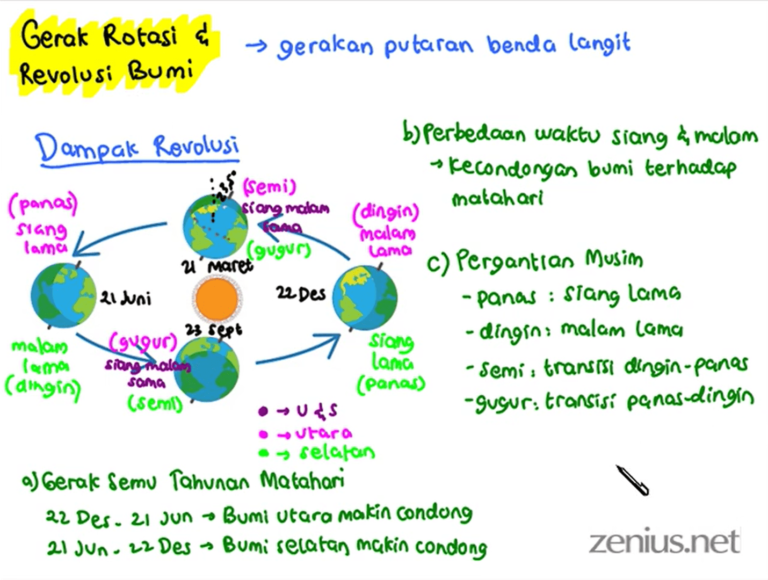 Gerak Rotasi &
Revolusi Bumi
→ gerakan putaran benda langit
Dampak Revolusi
(panas)
siang
lama
21 Juni
malam
lama
(dingin)
23,5°
(semi)
siang malam
sama
(gugur)
21 Maret
(dingin)
malam
lama
22 Des
siang
lama
(panas)
23 Sept
(gugur)
siang malam
sama
(semi)
• → U & S
• → utara
• → selatan
a) Gerak Semu Tahunan Matahari
22 Des - 21 Jun → Bumi utara makin condong
21 Jun - 22 Des → Bumi selatan makin condong
b) Perbedaan waktu siang & malam
→ Kecondongan bumi terhadap
matahari
c) Pergantian Musim
- panas : siang lama
- dingin : malam lama
- semi : transisi dingin-panas
- gugur : transisi panas-dingin
zenius.net